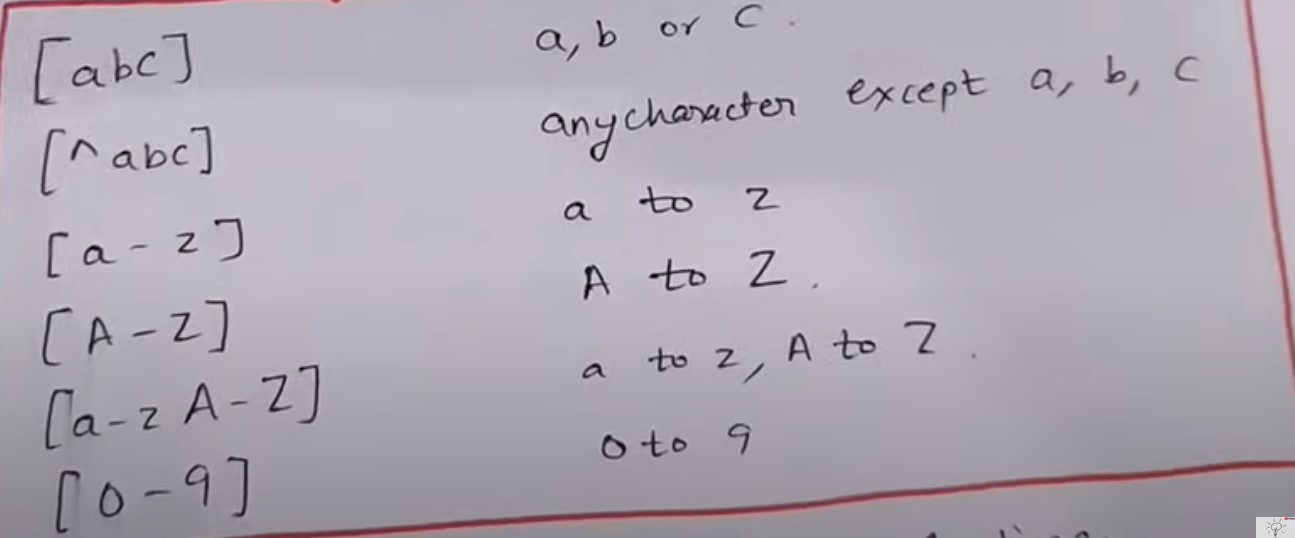 [abc] a, b or c.
[^abc] anycharacter except a, b, c
[a-z] a to z
[A-Z] A to Z.
[a-z A-Z] a to z, A to Z.
[0-9] 0 to 9